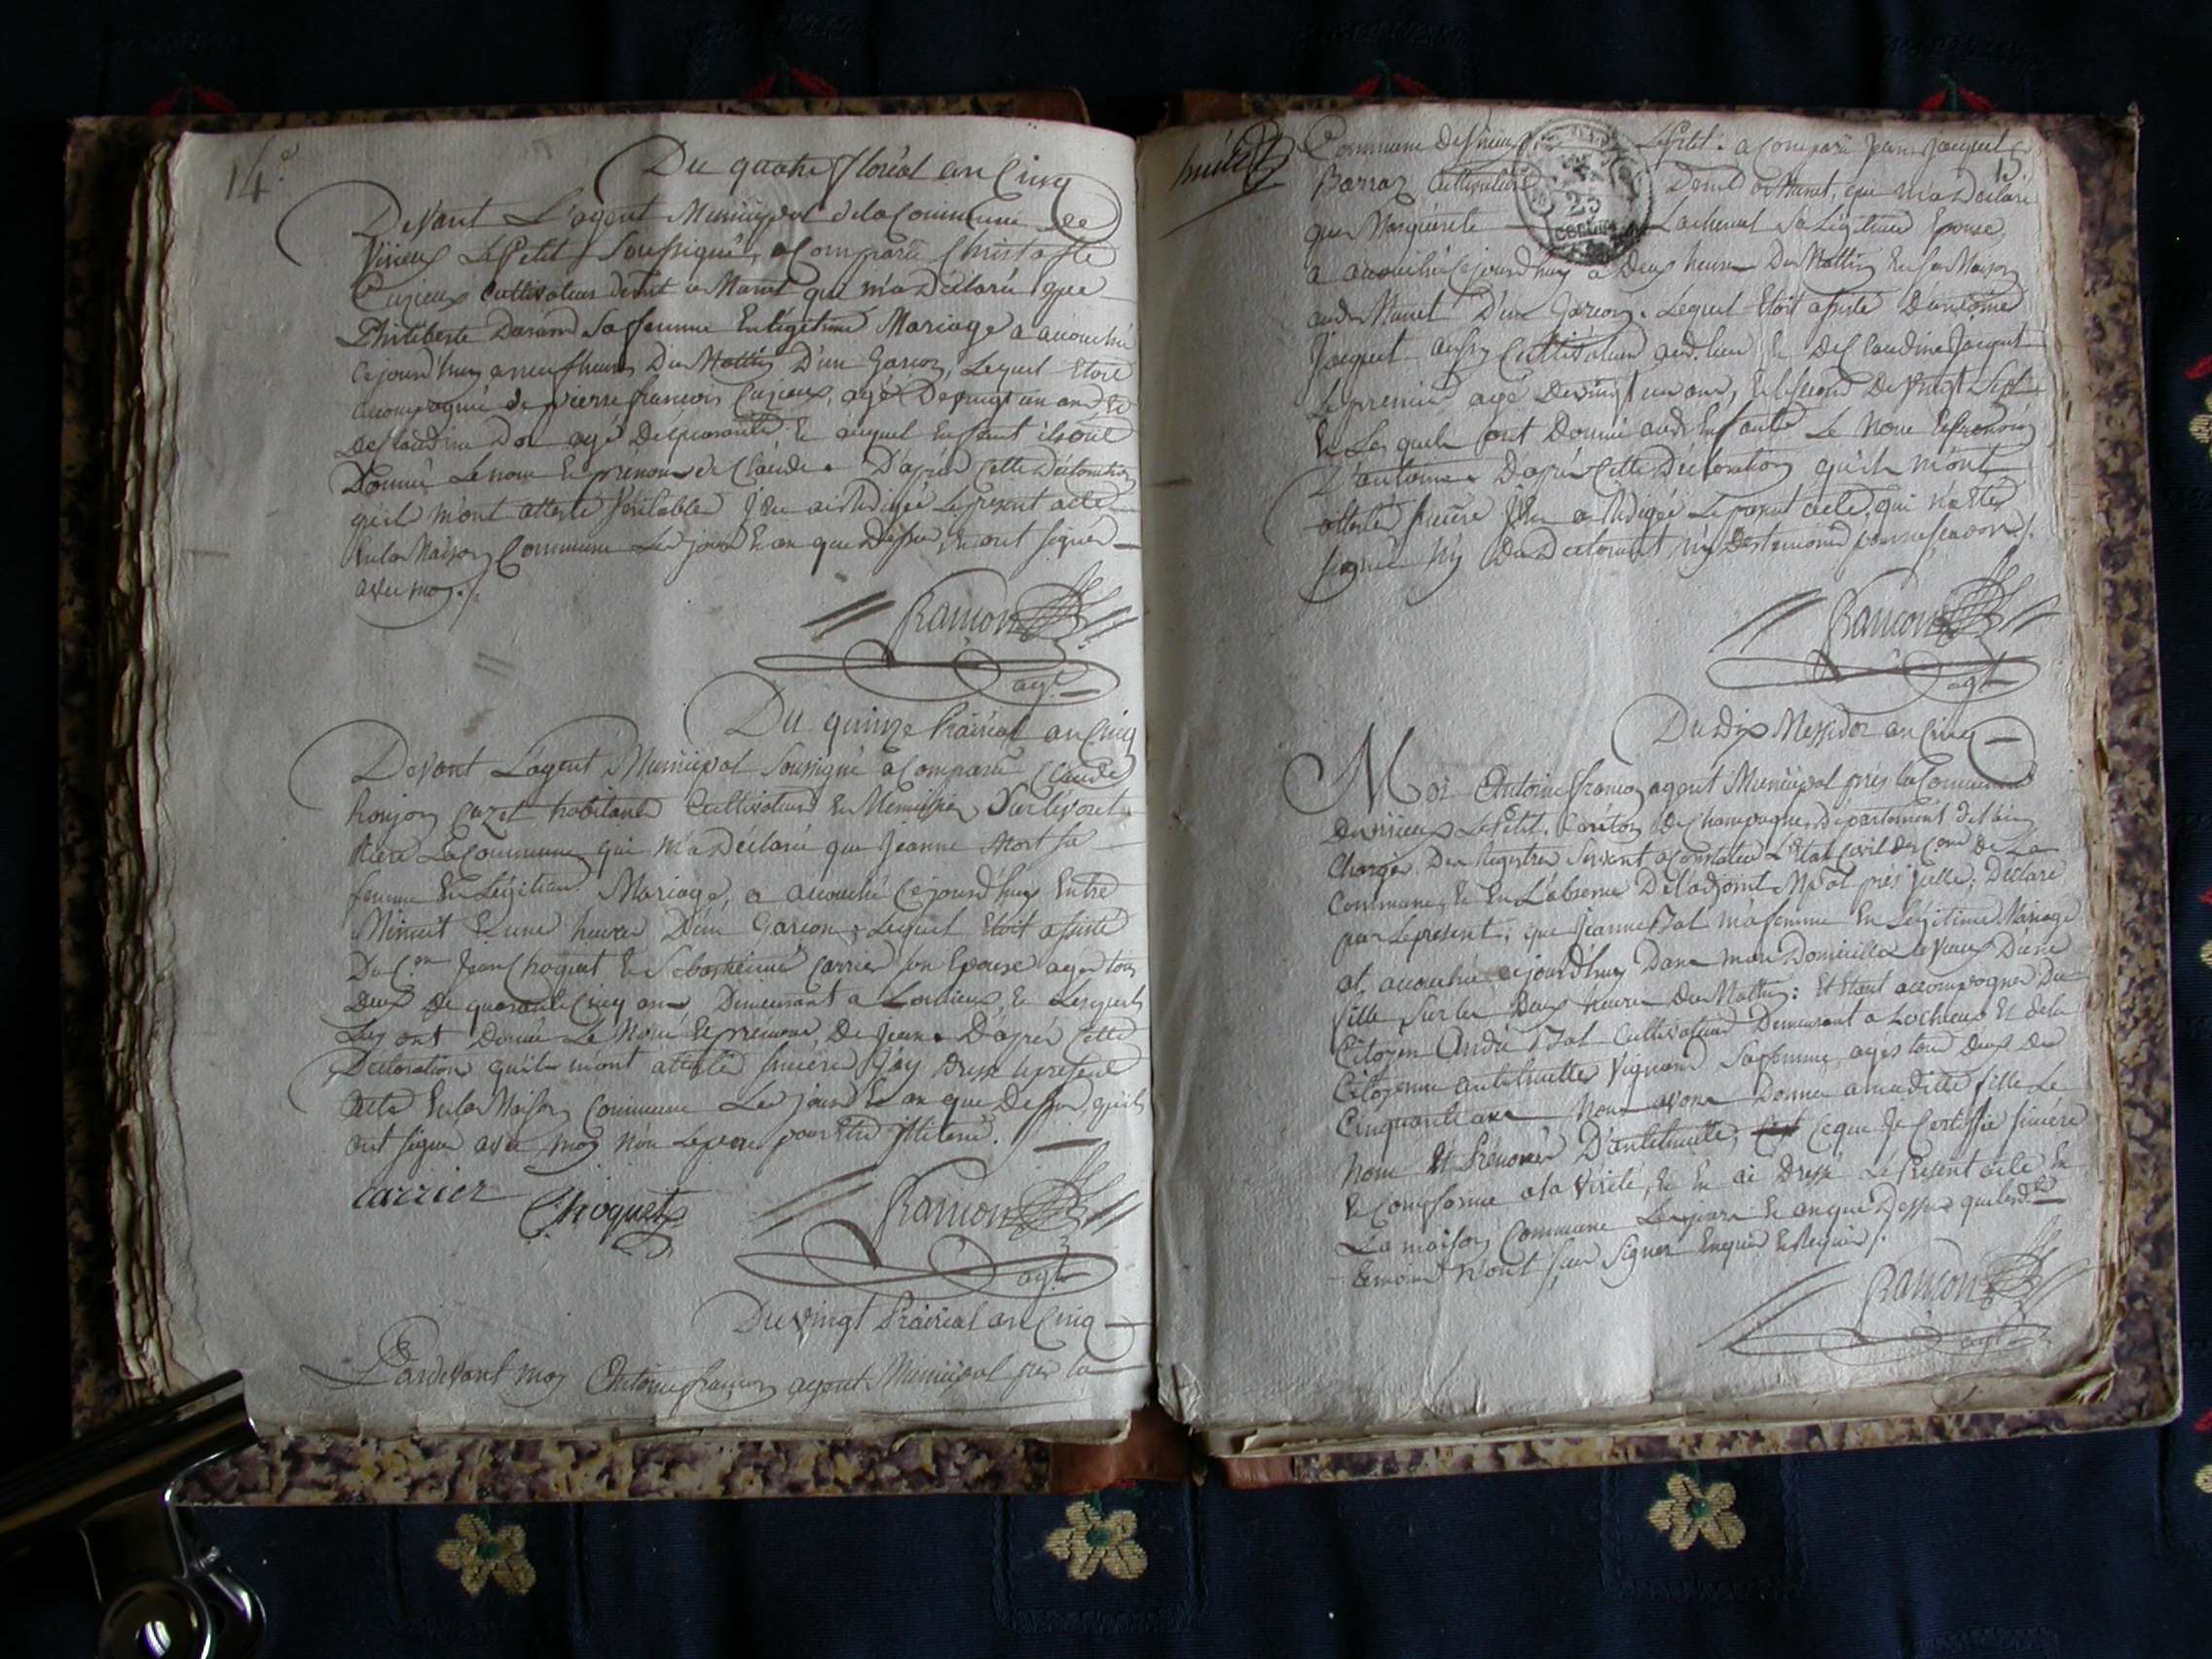 14.e
Du quatre floréal an Cinq
Devant L'agent Municipal de la Commune de
Virieux Le Petit Soussigné, a Comparu Christofle
Cusieux Cultivateur demt a Munet qui m'a Déclaré que
Philiberte Durand Sa femme En légitime Mariage a accouché
Cejourd'huy a neuf heures Du Mattin D'un Garcon, Lequel Etoit
accompagné de pierre francois Cusieux, agé De vingt un ans, Et
De Claudine agé De quarante, Et auquel Enfant ils ont
Donné Le nom Et prénom de Claude. D'après Cette Déclaration
qu'ils m'ont attesté Véritable J'En ai Rédigée Le present acte
En la Maison Commune Les jour Et an que Dessus, Et ont signer
avec moy./.
francon
agt
Du quinze Prairial an Cinq
Devant L'agent Municipal Soussigné a Comparu Claude
habitant Cultivateur
Rière La Commune qui m'a Déclaré que Jeanne Mort Sa
femme En Légitime Mariage, a accouché Cejourd'huy Entre
Minuit Et une heure D'un Garcon, Lequel Etoit assisté
Du C.en Jean Choquet Et Sebastienne Carrier son Epouse agés tous
Deux De quarante Cinq ans Dimeurant a Et Lesquels
Luy ont Donné Le Nom Et prenom De Jean. D'après Cette
Déclaration qu'ils m'ont attesté sincère J'ay Dressé le present
acte En la Maison Commune Les jour Et an que Dessus, qu'ils
ont signé avec moy Non Le pere pour Etre illiteré.
carrier Choquet
francon
agt
Du Vingt Prairial an Cinq
Pardevant moy Antoine francon agent Municipal près la
15.
Commune De Virieux Le Petit. a Comparu Jean Jacquet
Barraz Cultivateur Demt a Munet, qui m'a Déclaré
que Marguerite Lachenal Sa Légitime Epouse,
a accouché Cejourd'huy a Deux heures Du Mattin En sa Maison
aud. Munet D'un Garcon. Lequel Etoit assisté D'antoine
Jacquet aussy Cultivateur aud. lieu Et De Claudine Jacquet
Le premier agé De vingt un ans, Et la Second De Vingt Sept
Et Les quels ont Donné aud. Enfant Le Nom Et prénom
D'antoine. D'après Cette Déclaration qu'ils m'ont
attesté sincère J'En ai Rédigée Le present acte, qui n'a Eté
signé Ny Du Déclarant ny Des temoins pour ne scavoir./.
francon
agt
Du Dix Messidor an Cinq
Moi Antoine francon agent Municipal près la Commune
De virieux Le Petit. Canton De Champagne, Département de L'ain
Chargé Des Registres Servant a Constater L'Etat Civil Des C.ens De La
Commune, Et En L'absence De L'adjoint M.pal près Icelle; Déclare
par Le present; que Jeanne Jal ma femme En Légitime Mariage
at. accouchée Cejourd'huy Dans mon Domicille a Vaux D'une
fille, Sur les Deux heures Du Mattin: Et Etant accompagner Du
Citoyen André Jal Cultivateur Demeurant a Lochieux Et de la
Citoyenne anthelmette Vignand Sa femme, agés tous Deux De
Cinquante ans Nous avons Donner a madite fille Le
Nom Et Prénom D'anthelmette, Ce que Je Certiffie sincère
Et Conforme a la Vérité, Et En ai Dressé Le Présent acte En
La maison Commune Les jour Et an que Dessus que lesd.
temoins N'ont scu Signer Enquis Et Requis./.
francon
agt